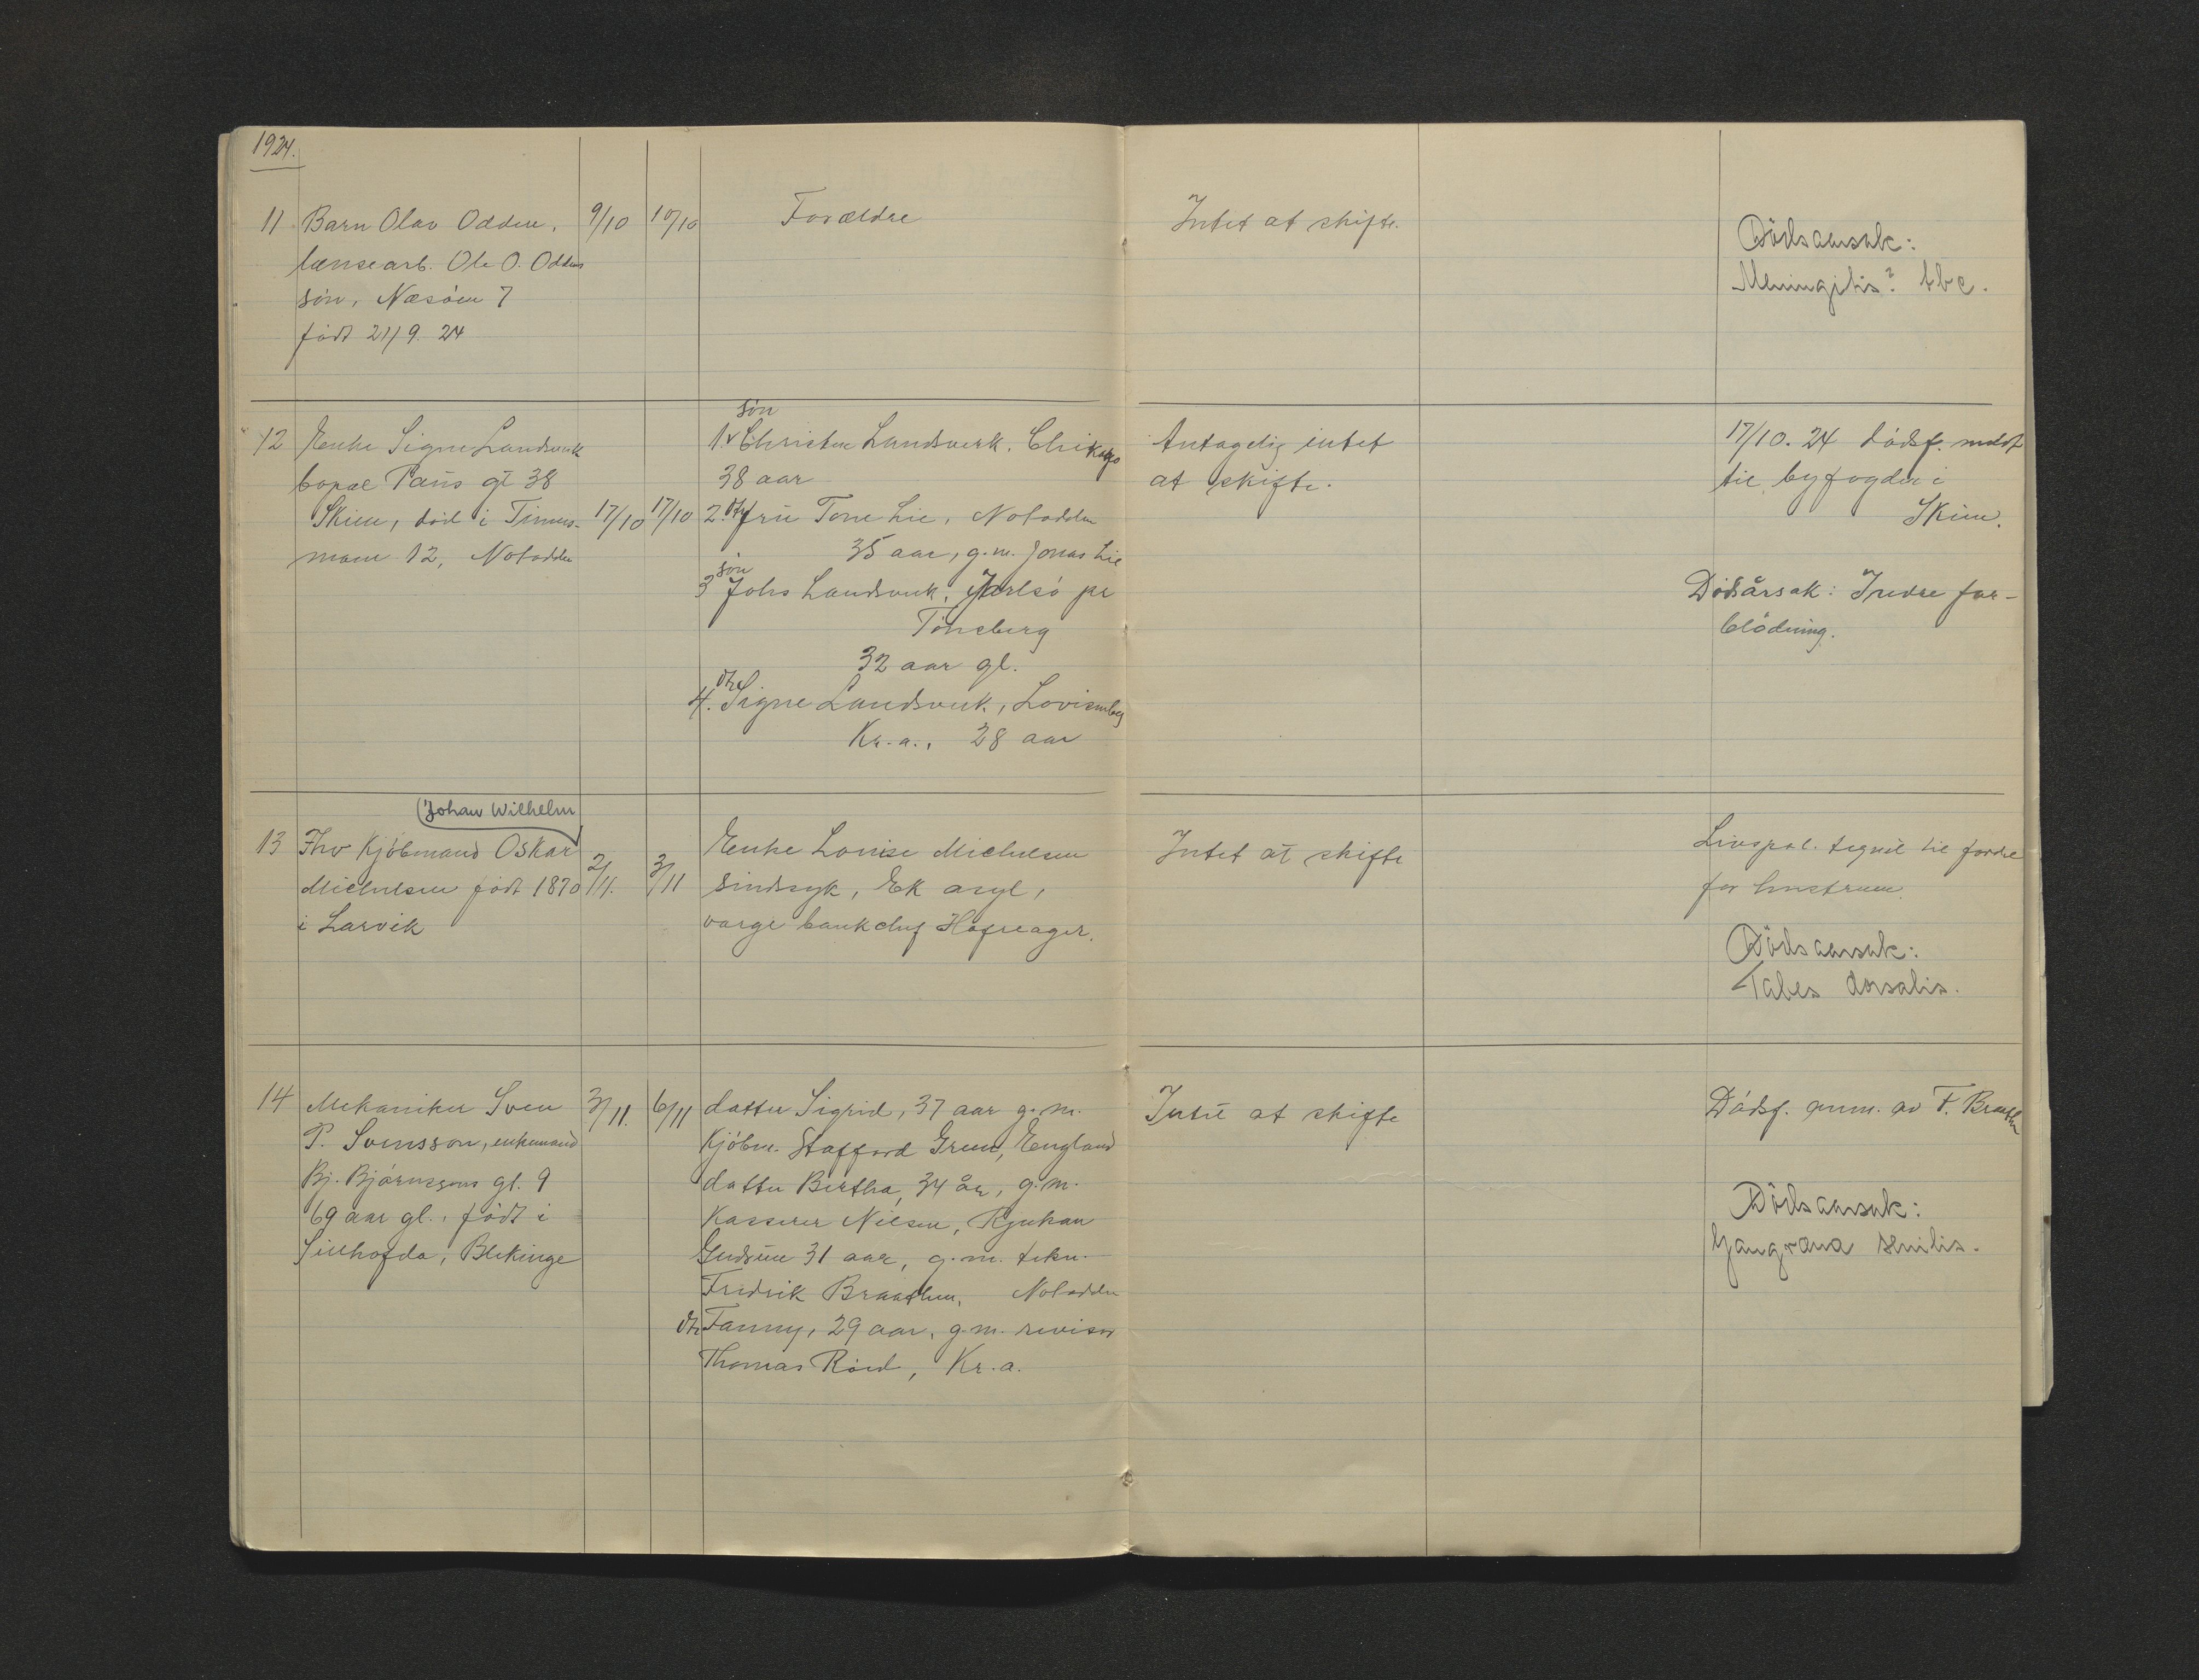 1924.
11 Barn Olav Odden, 9/10 10/10 Forældre Intet at skifte.
lensearb. Ole O. Oddens
søn, Næsøen 7
født 21/9 24
Dödsaarsak:
Meningitis? tbc.
12 Enke Signe Landsverk
bopæl Pauls gt 38
Skien, död i Tinnes- 17/10 17/10
moen 12, Notodden
søn
1. Christen Landsverk. Chikago
38 aar
2. dtr fru Tone Lie, Notodden
35 aar, g.m. Jonas Lie
søn
3 Johs Landsverk, Jarlsö pr
Tönsberg
32 aar gl.
dtr
4. Signe Landsverk, Lovisenberg
Kr.a., 28 aar
Antagelig intet
at skifte.
17/10. 24 dødsf. meldt
til byfogden i
Skien.
Dödsårsak: Indre for-
blödning.
(Johan Wilhelm)
13 Fhv Kjöbmand Oskar
Michelsen født 1870 2/11. 3/11
i Larvik
Enke Louise Michelsen
sindssyk, Ek asyl,
verge bankchef Hofseager.
Intet at skifte
Livspol. tegnet til fordel
for hustruen.
Dödsaarsak:
Tabes dorsalis.
14 Mekaniker Sven 3/11. 6/11
P. Svensson, enkemand
Bj. Bjørnssons gt. 9
69 aar gl., født i
Sillhofda, Blekinge
datter Sigrid, 37 aar g.m.
Kjöbm. Stafford Green, England
datter Bertha, 34 år, g.m.
Kasserer Nilsen, Rjukan
Gudrun 31 aar, g.m. tekn.
Fredrik Braathen, Notodden
dtr Fanny, 29 aar, g.m. revisor
Thomas Röed, Kr.a.
Intet at skifte
Dödsf. anm. av F. Braathen
Dödsaarsak:
Gangræna senilis.